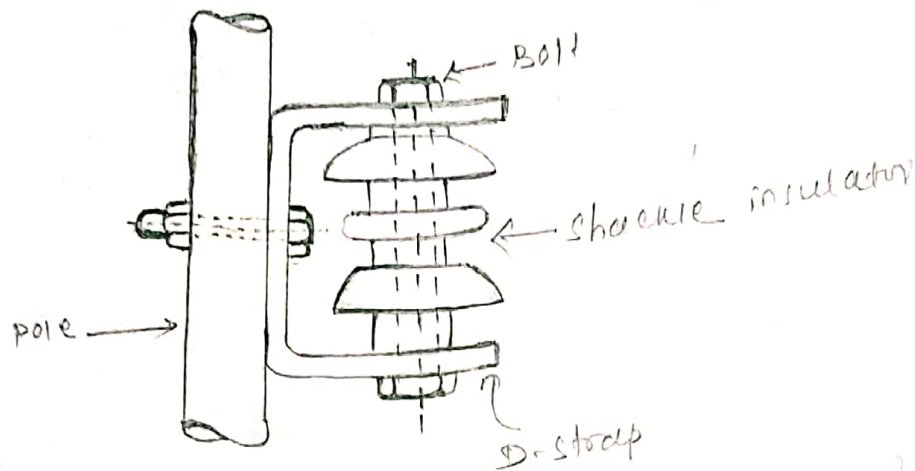 Bolt
Shackle insulator
Pole
D-strap